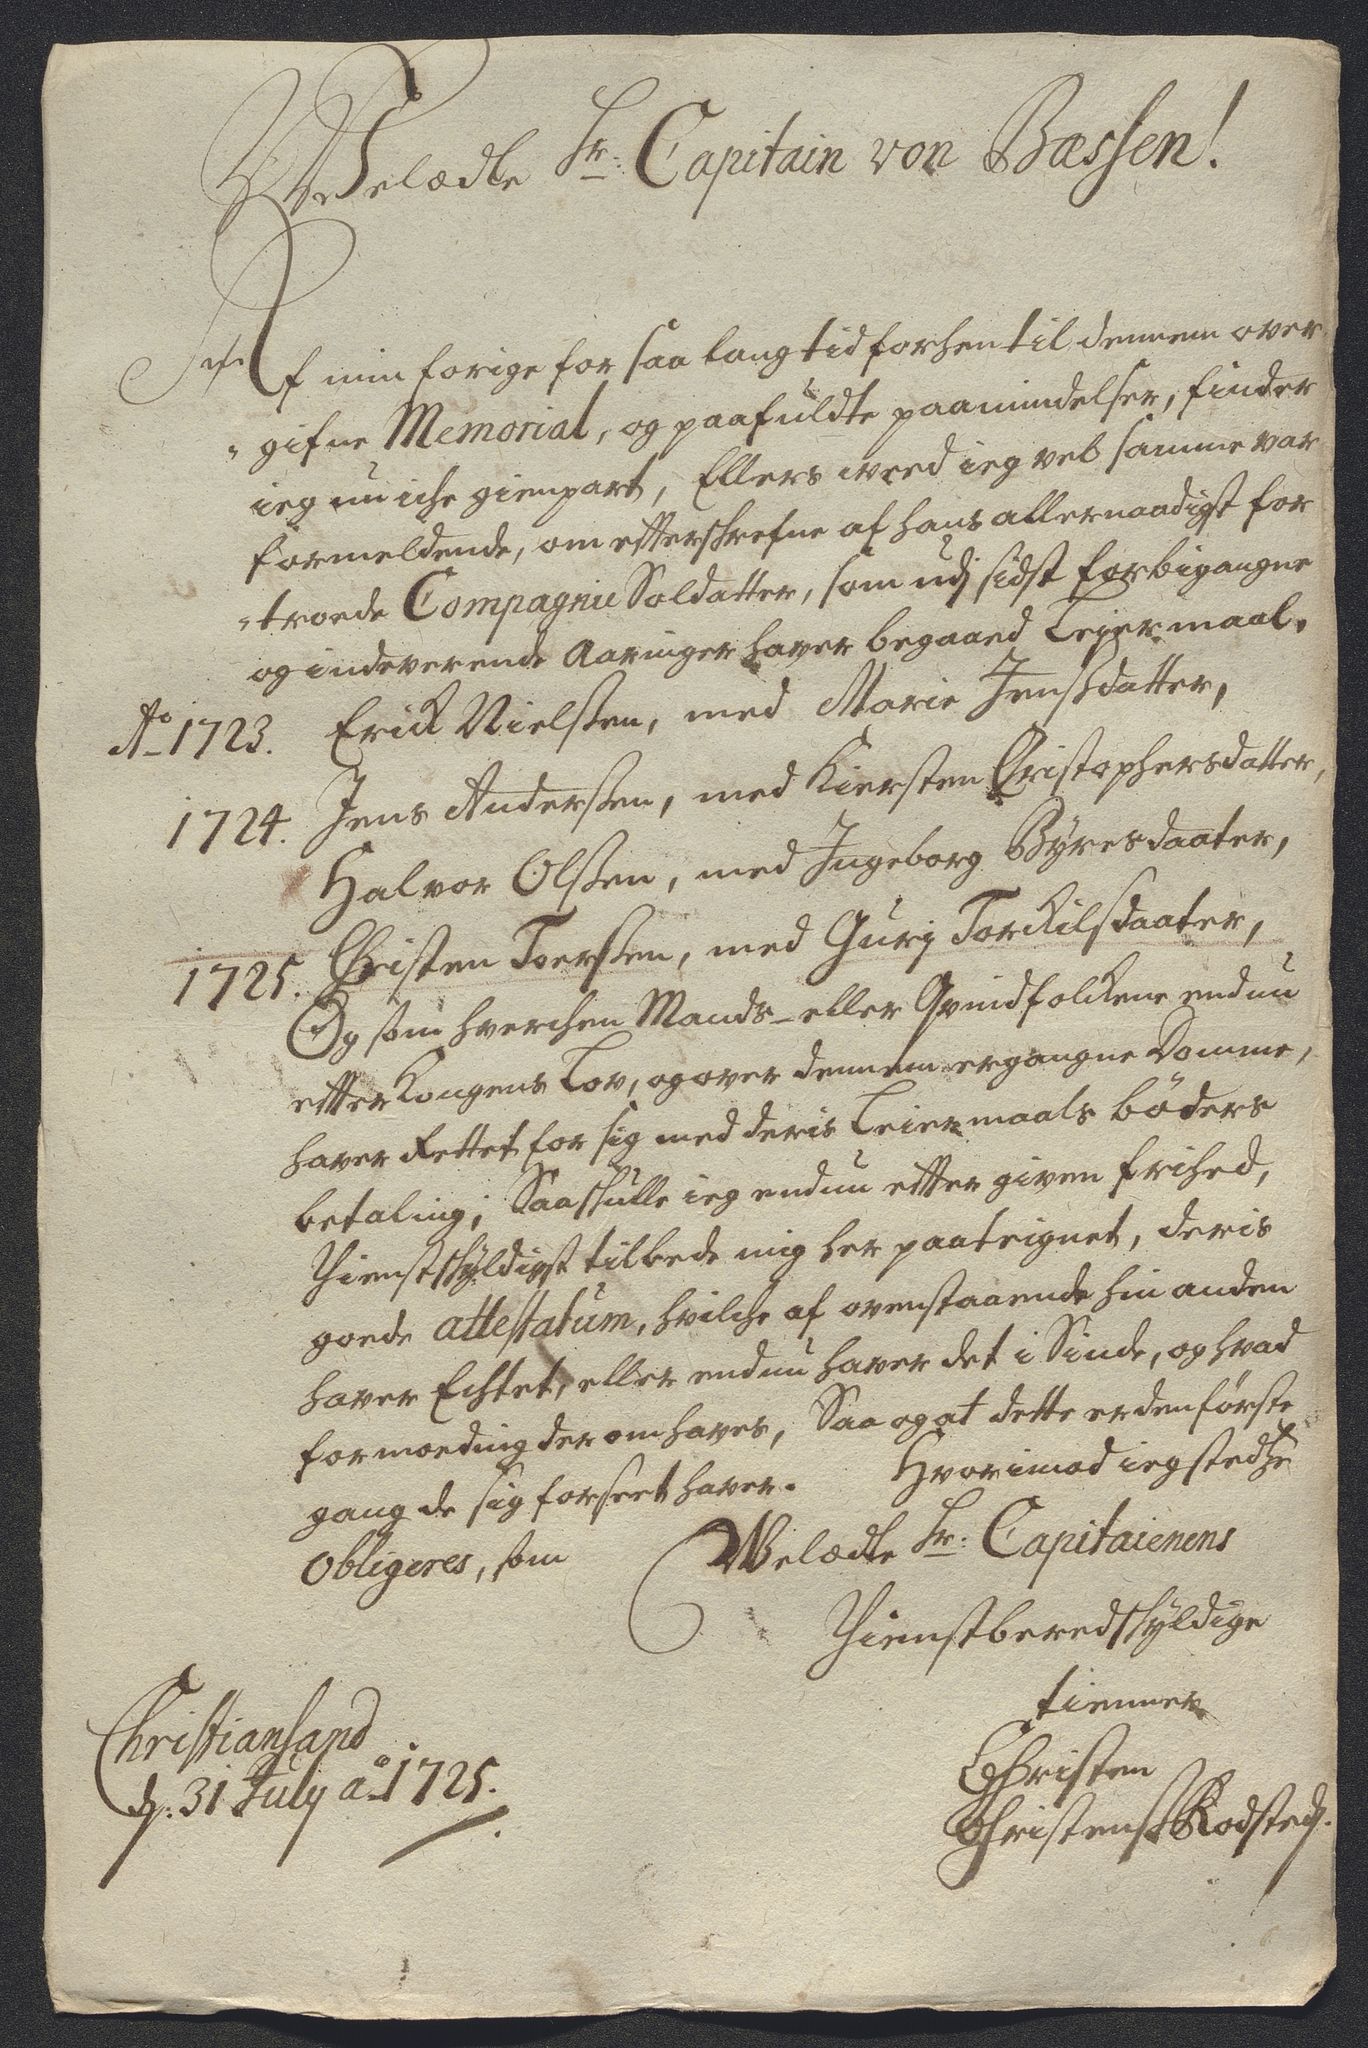 Welædle Hr: Capitain von Bæssen!
Af min forige for saa lang tid forhen til dennem over,
„ gifne Memorial, og paafuldte paamindelser, finder
ieg nu iche gienpart, Ellers weed ieg vel samme var
formeldende, om efterskrefne af hans allernaadigst for
„troede Compagnie Soldatter, som udj sidst forbigangne
og indeverende Aaringer haver begaaed Leyermaal.
Ao 1723. Erick Nielssen, med Marie Jenssdatter,
1724. Jens Anderssen, med Kiersten Christophersdatter,
Halvor Olssen, med Ingeborg Byresdaater,
1725. Christen Toerssen, med Gurj Torckilsdaater,
Og som hverchen Mands- eller Qvindfolckene endnu
efter Kongens Lov, og over dennem ergangne Domme,
haver Rettet for sig med deris Leiermaals böders
betaling; Saa skulle ieg endnu efter given frihed,
Thienstskyldigst tilbede mig her paateignet, deris
goede attestatum, hvilche af ovenstaaende hin anden
haver Echtet, eller endnu haver det i Sinde, og hvad
formoeding der om haves, Saa og at dette er den förste
gang de sig forseet haver. Hvorimod ieg stedtze
obligeres, som Welædle Hr: Capitaienens
Thienstberedskyldige
tienner
Christen
Christens: Rodsted.
Christiansand
d: 31 July ao 1725.